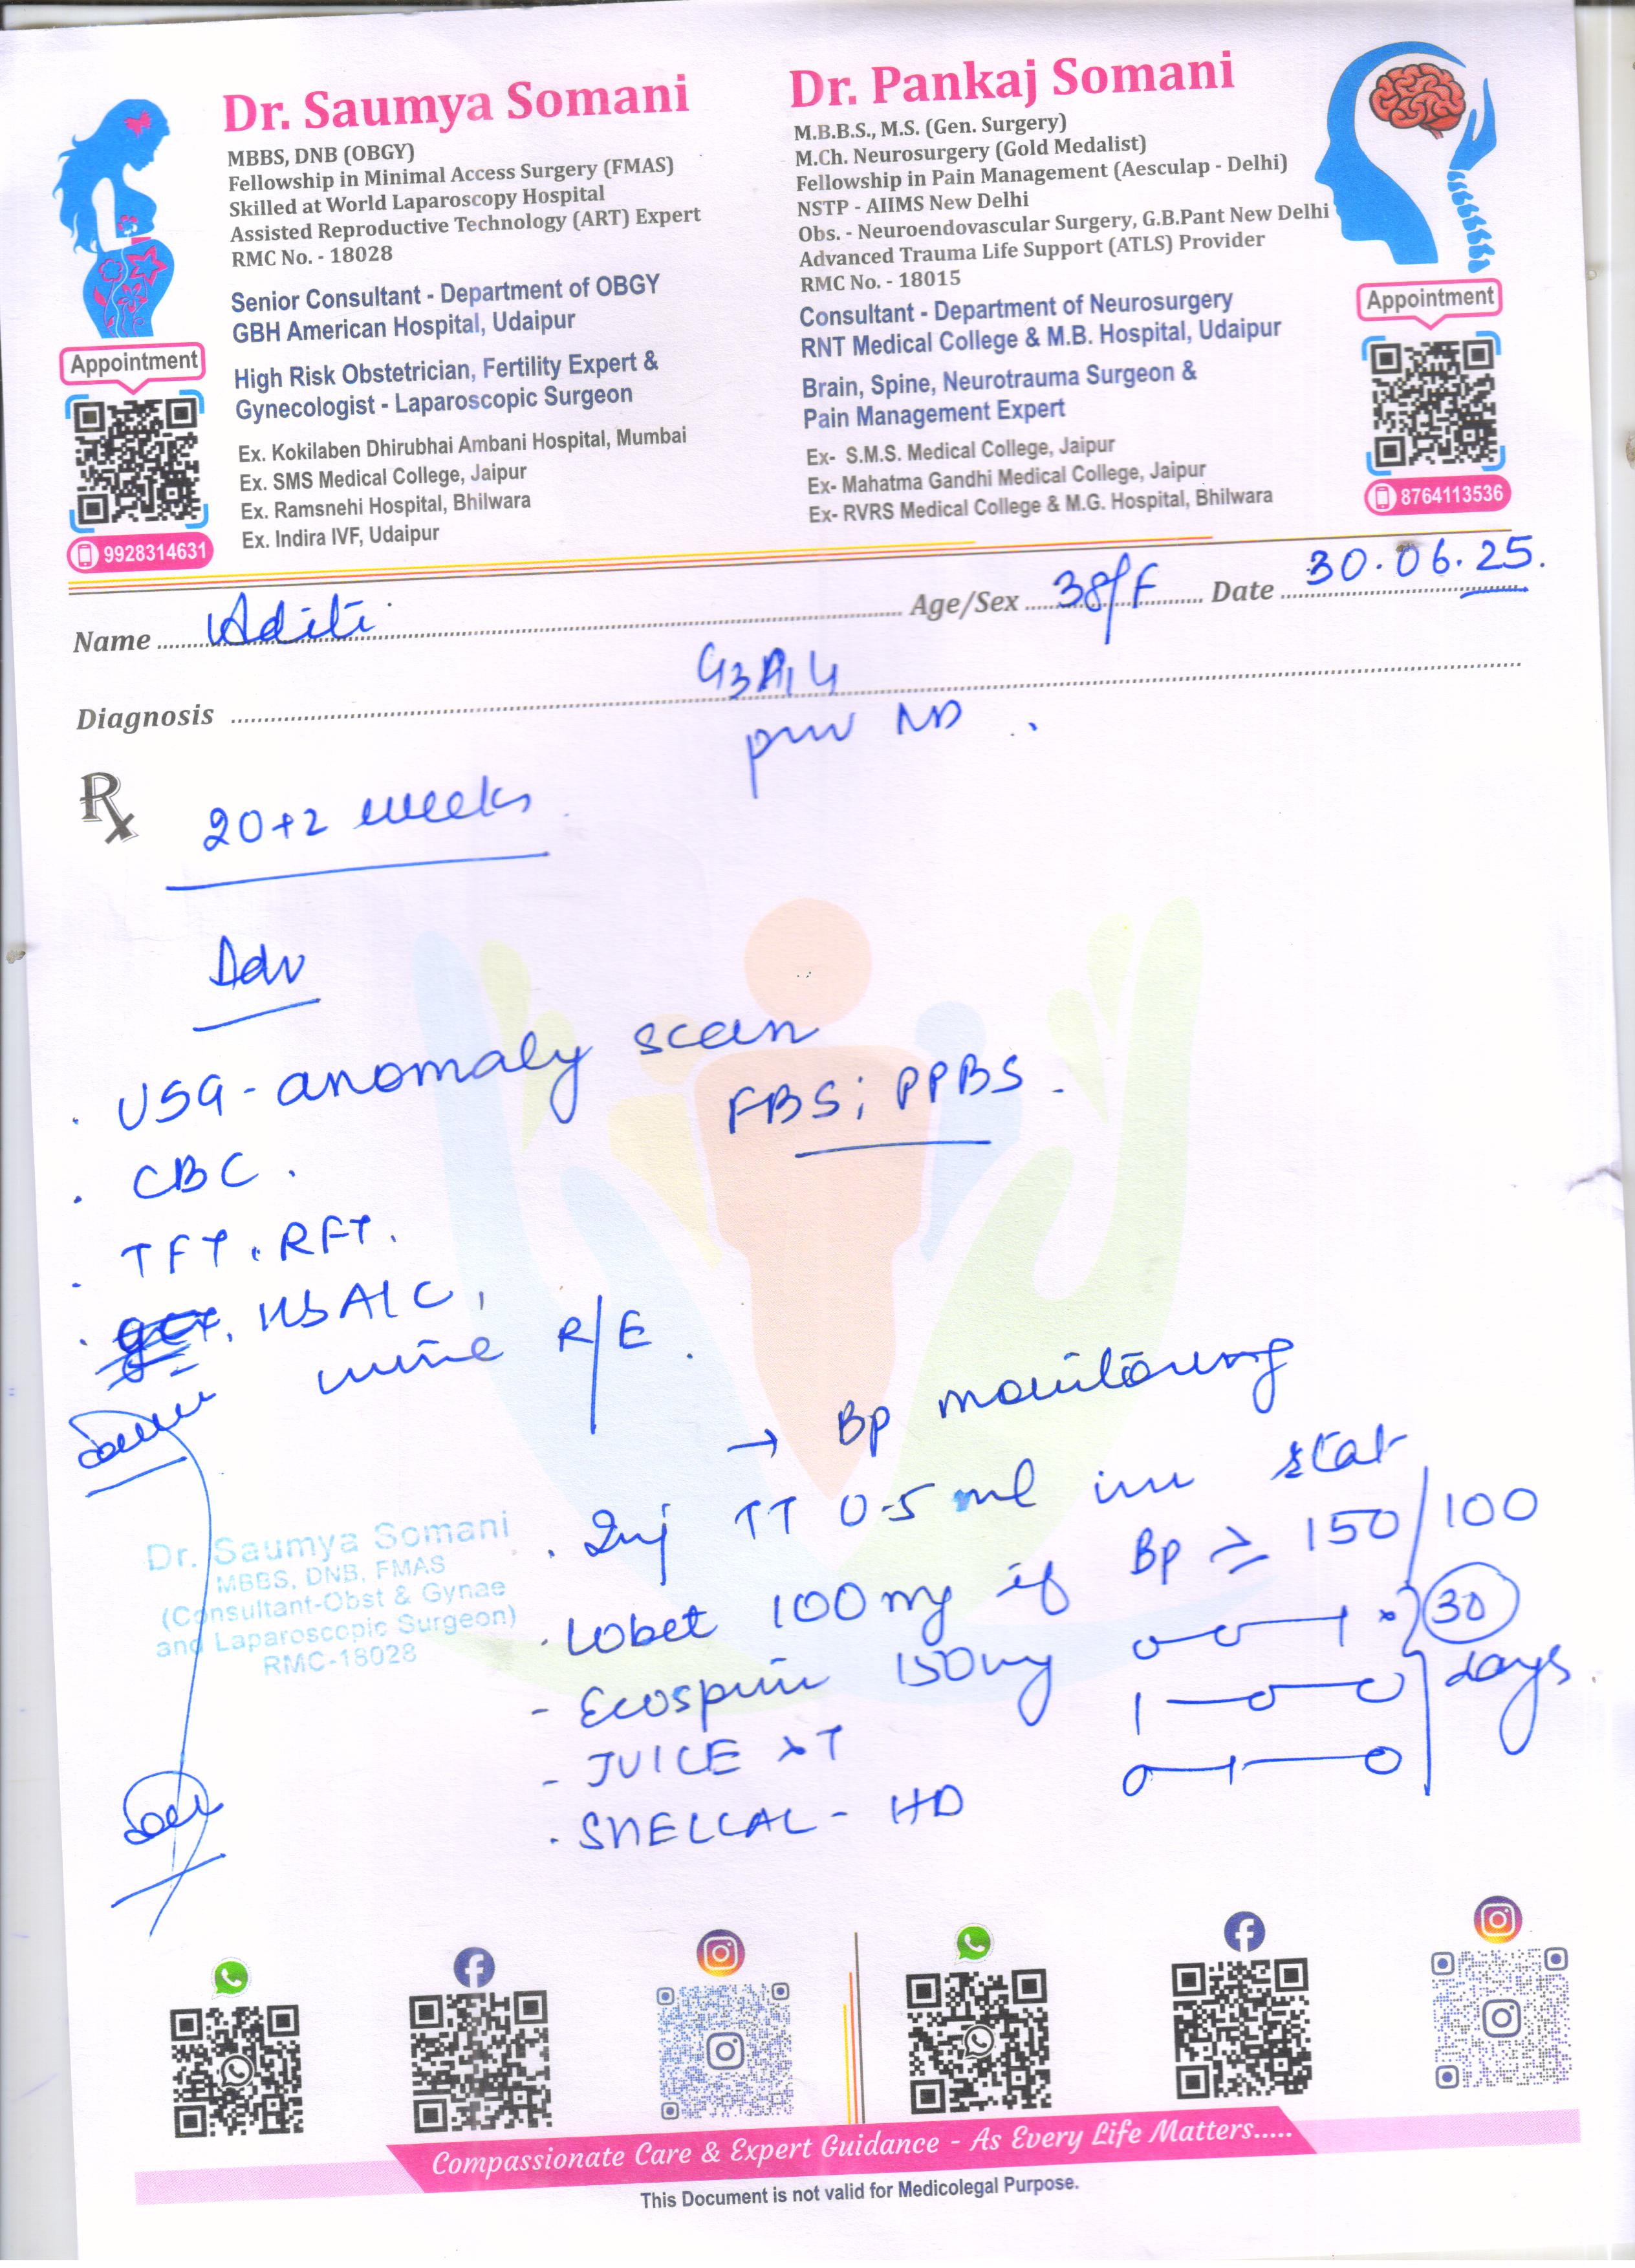 Dr. Saumya Somani
MBBS, DNB (OBGY)
Fellowship in Minimal Access Surgery (FMAS)
Skilled at World Laparoscopy Hospital
Assisted Reproductive Technology (ART) Expert
RMC No. - 18028
Senior Consultant - Department of OBGY
GBH American Hospital, Udaipur
High Risk Obstetrician, Fertility Expert &
Gynecologist - Laparoscopic Surgeon
Ex. Kokilaben Dhirubhai Ambani Hospital, Mumbai
Ex. SMS Medical College, Jaipur
Ex. Ramsnehi Hospital, Bhilwara
Ex. Indira IVF, Udaipur
Appointment
9928314631
Dr. Pankaj Somani
M.B.B.S., M.S. (Gen. Surgery)
M.Ch. Neurosurgery (Gold Medalist)
Fellowship in Pain Management (Aesculap - Delhi)
NSTP - AIIMS New Delhi
Obs. - Neuroendovascular Surgery, G.B.Pant New Delhi
Advanced Trauma Life Support (ATLS) Provider
RMC No. - 18015
Consultant - Department of Neurosurgery
RNT Medical College & M.B. Hospital, Udaipur
Brain, Spine, Neurotrauma Surgeon &
Pain Management Expert
Ex- S.M.S. Medical College, Jaipur
Ex- Mahatma Gandhi Medical College, Jaipur
Ex- RVRS Medical College & M.G. Hospital, Bhilwara
Appointment
8764113536
Name Aditi Age/Sex 38/F Date 30.06.25.
Diagnosis
Rx
20+2 weeks
Adv
. USG-anomaly scan
FBS; PPBS.
. CBC.
. TFT. RFT.
HbA1C,
urine R/E.
→ Bp monitoring
. Inj TT 0.5 ml im stat
. Lobet 100mg if Bp ≥ 150/100
- Ecosprin 150mg 0-0-1 x 30 days
- JUICE XT 1-0-0
. SHELCAL - HD 0-1-0
Dr. Saumya Somani
MBBS, DNB, FMAS
(Consultant-Obst & Gynae
and Laparoscopic Surgeon)
RMC-18028
Compassionate Care & Expert Guidance - As Every Life Matters.....
This Document is not valid for Medicolegal Purpose.